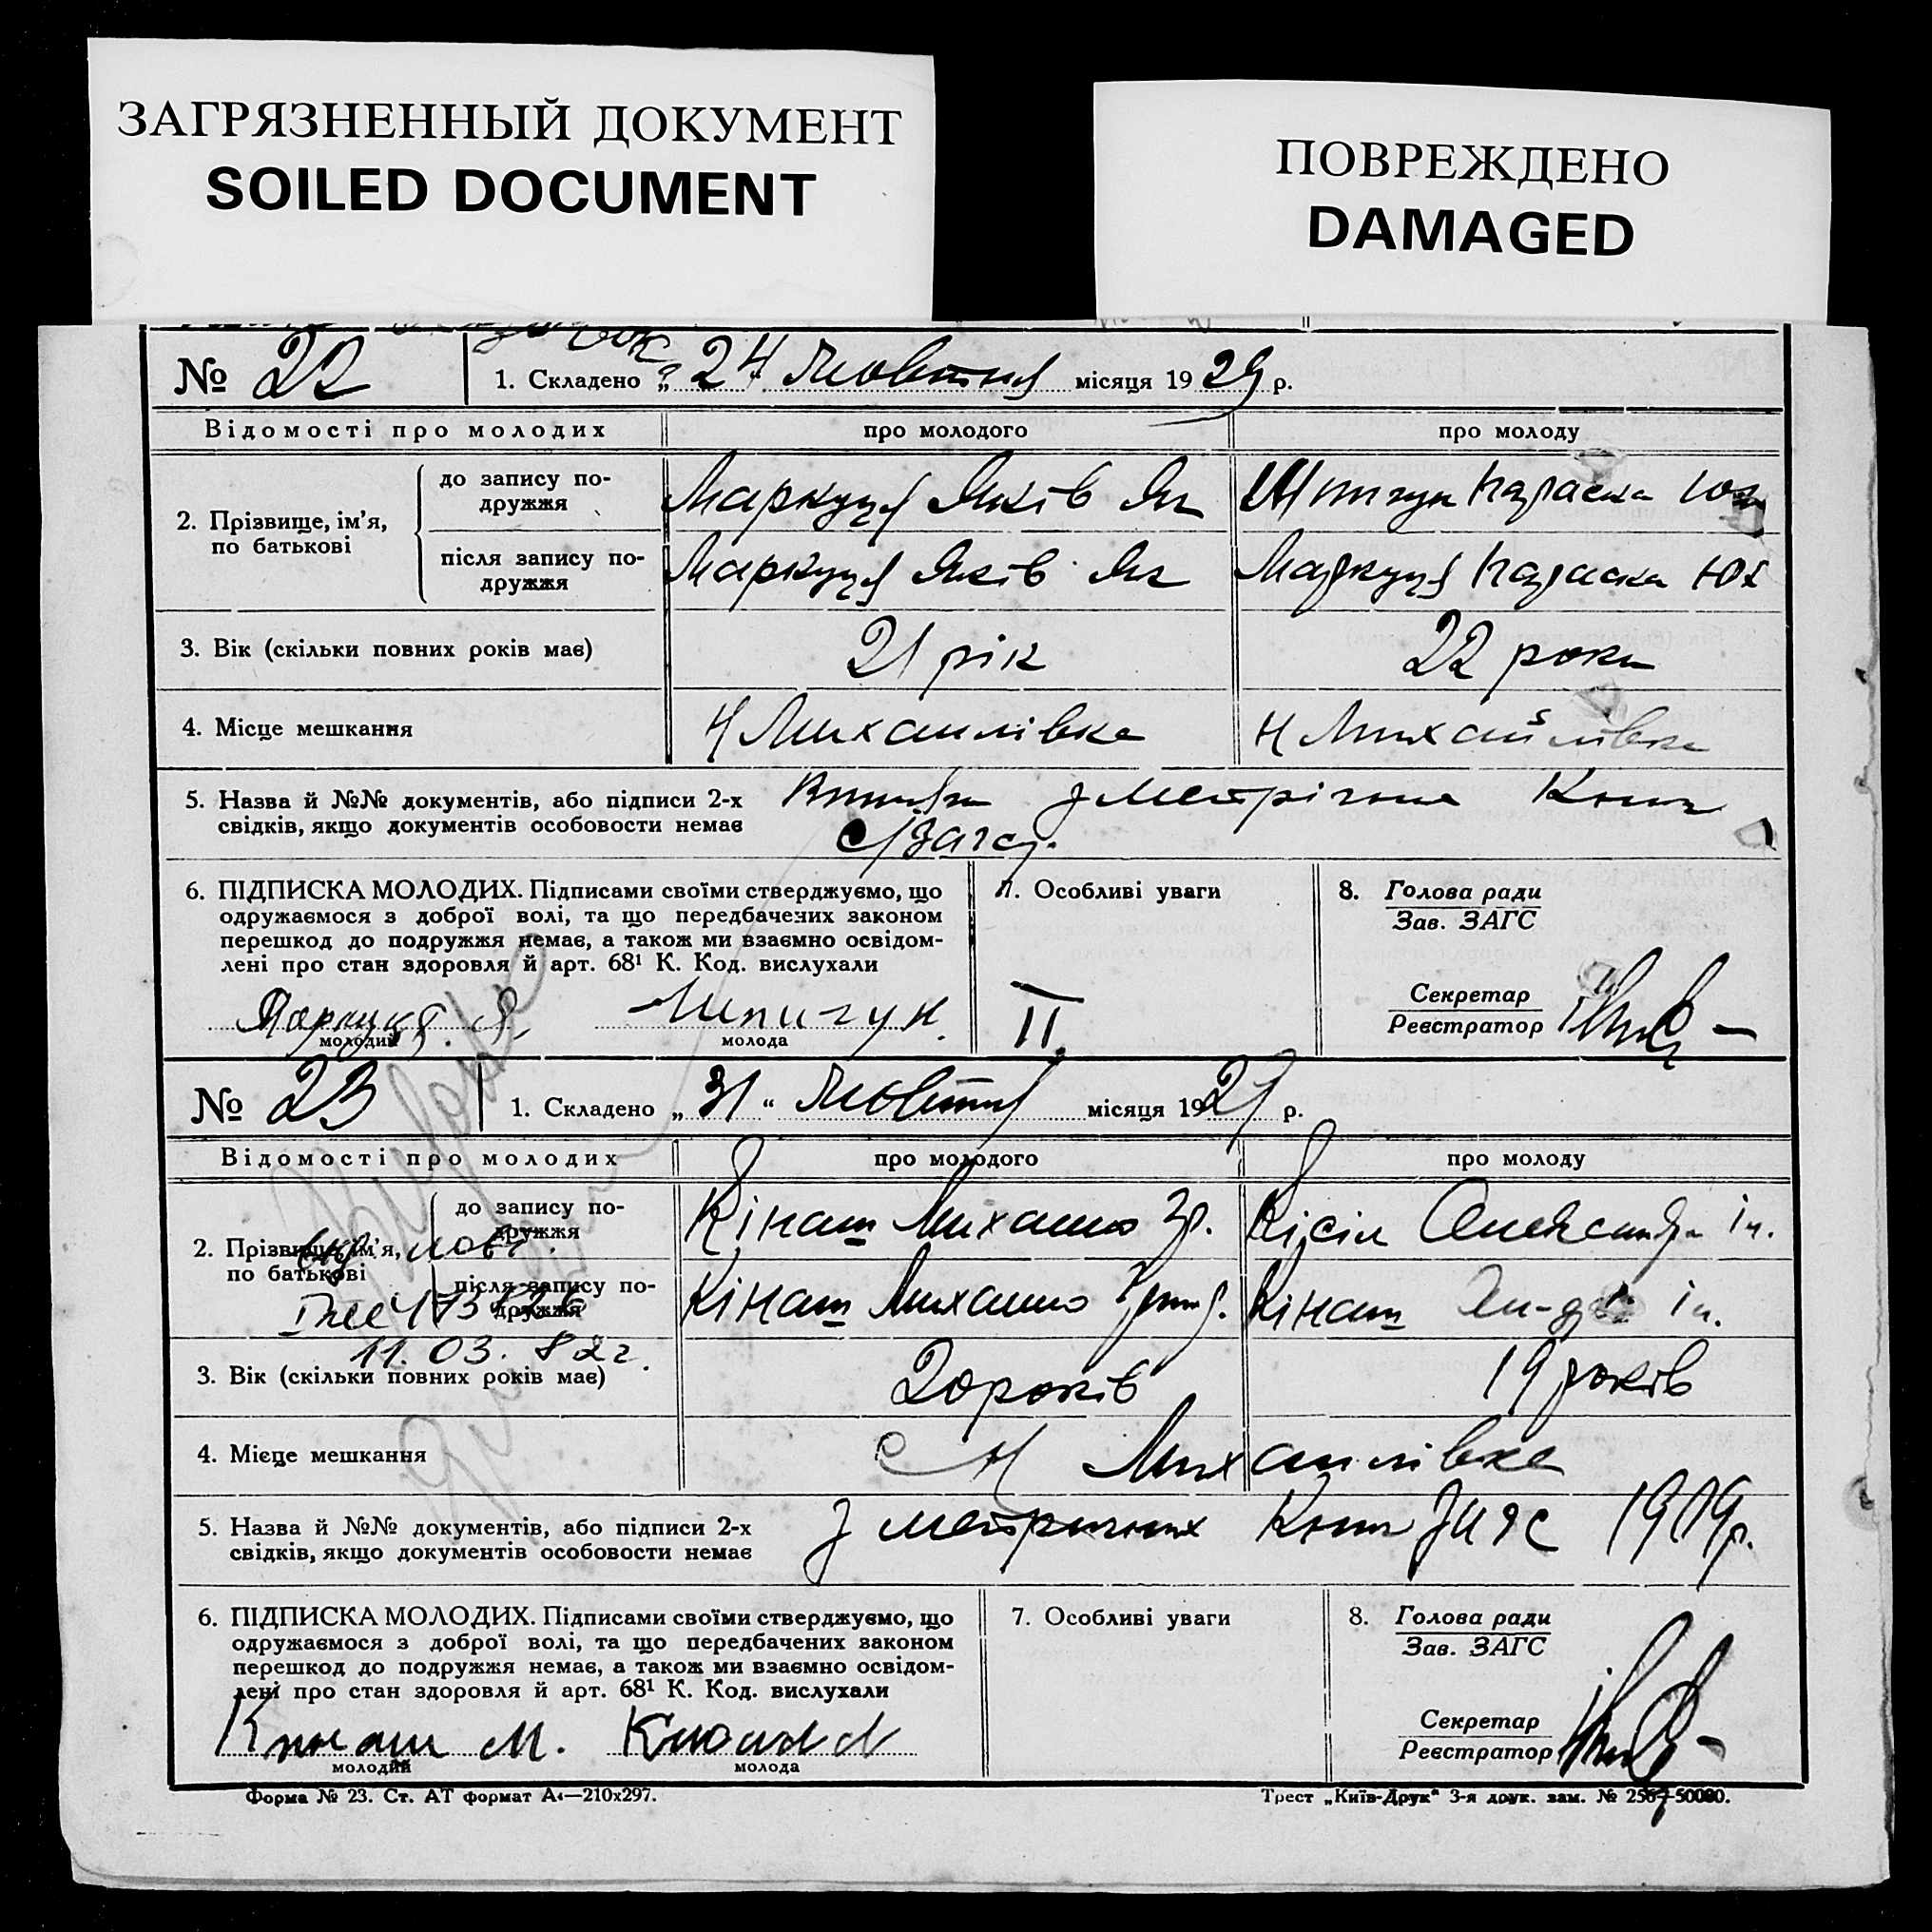 ЗАГРЯЗНЕННЫЙ ДОКУМЕНТ
SOILED DOCUMENT
ПОВРЕЖДЕНО
DAMAGED
№ 22 1. Складено „ 24 “ Жовтня місяця 19 29 р.
Відомості про молодих про молодого про молоду
2. Прізвище, ім'я, по батькові
до запису по-
дружжя
Маркуця Яків Як Шпигун Параска Юх
після запису по-
дружжя
Маркуця Яків Як Маркуця Параска Юх
3. Вік (скільки повних років має) 21 рік 22 роки
4. Місце мешкання Н Михайлівка Н Михайлівка
5. Назва й №№ документів, або підписи 2-х з Метрічних Книг
свідків, якщо документів особовости немає
6. ПІДПИСКА МОЛОДИХ. Підписами своїми стверджуємо, що
одружаємося з доброї волі, та що передбачених законом
перешкод до подружжя немає, а також ми взаємно освідом-
лені про стан здоровля й арт. 68¹ К. Код. вислухали
Маркуця Я. Шпигун
молодий молода
7. Особливі уваги
II
8. Голова ради
Зав. ЗАГС
Секретар
Реєстратор
№ 23 1. Складено „ 31 “ Жовтня місяця 19 29 р.
Відомості про молодих про молодого про молоду
2. Прізвище, ім'я, по батькові
до запису по-
дружжя
Кінаш Михайло Гр. Кісіль Олександра Ів.
після запису по-
дружжя
Кінаш Михайло Григ. Кінаш Ол-дра Ів.
11.03.82г.
3. Вік (скільки повних років має) 20 років 19 років
4. Місце мешкання с Н Михайлівка
5. Назва й №№ документів, або підписи 2-х з метричних Книг 1909р.
свідків, якщо документів особовости немає
6. ПІДПИСКА МОЛОДИХ. Підписами своїми стверджуємо, що
одружаємося з доброї волі, та що передбачених законом
перешкод до подружжя немає, а також ми взаємно освідом-
лені про стан здоровля й арт. 68¹ К. Код. вислухали
Кинаш М.
молодий молода
7. Особливі уваги
8. Голова ради
Зав. ЗАГС
Секретар
Реєстратор
Форма № 23. Ст. АТ формат А₄—210х297.
Трест „Київ-Друк“ 3-я друк. зам. № 2567-50000.